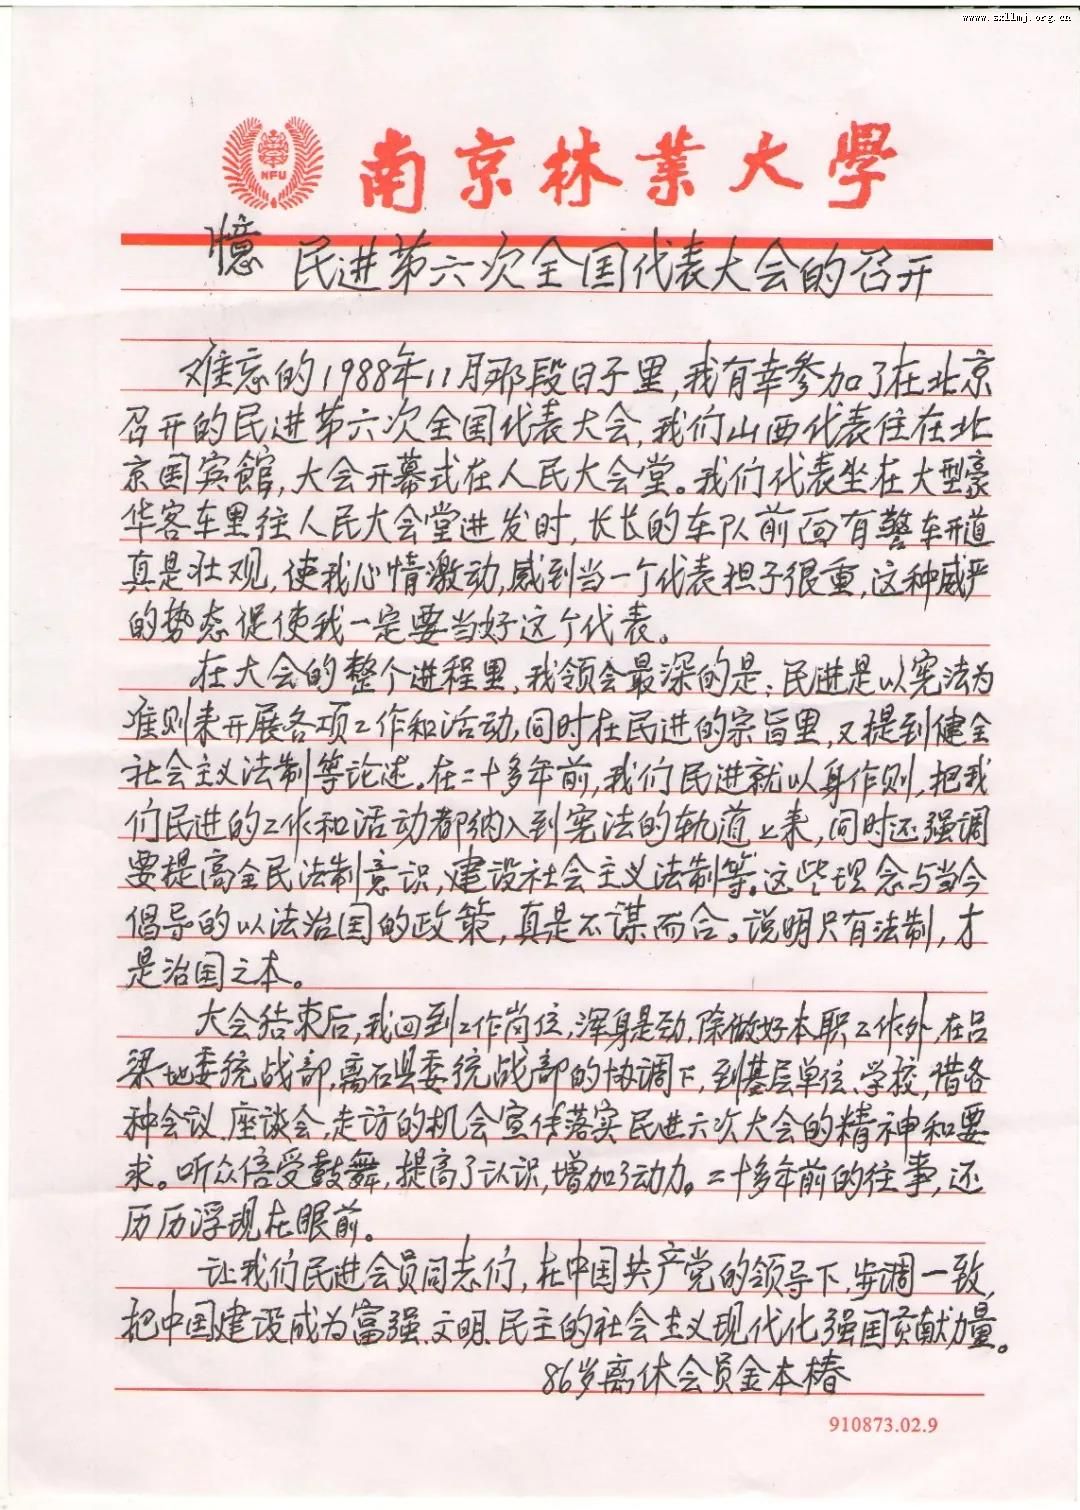 www.sxllmj.org.cn
NFU
南京林业大學
憶民进第六次全国代表大会的召开
难忘的1988年11月那段日子里,我有幸参加了在北京
召开的民进第六次全国代表大会,我们山西代表住在北
京国宾館,大会开幕式在人民大会堂。我们代表坐在大型豪
华客车里往人民大会堂进发时,长长的车队前面有警车开道
真是壮观,使我心情激动,感到当一个代表担子很重,这种威严
的势态促使我一定要当好这个代表。
在大会的整个进程里,我领会最深的是:民进是以宪法为
准则来开展各项工作和活动,同时在民进的宗旨里,又提到健全
社会主义法制等论述。在二十多年前,我们民进就以身作则,把我
们民进的工作和活动都纳入到宪法的轨道上来,同时还强调
要提高全民法制意识,建设社会主义法制等。这些理念与当今
倡导的以法治国的政策,真是不谋而合。说明只有法制,才
是治国之本。
大会结束后,我回到工作岗位,浑身是劲,除做好本职工作外,在吕
梁地委统战部,离石县委统战部的协调下,到基层单位、学校,借各
种会议、座谈会,走访的机会宣传落实民进六次大会的精神和要
求。听众倍受鼓舞,提高了认识,增加了动力。二十多年前的往事,还
历历浮现在眼前。
让我们民进会员同志们,在中国共产党的领导下,步调一致,
把中国建设成为富强、文明、民主的社会主义现代化强国贡献力量。
86岁离休会员金本椿
910873.02.9